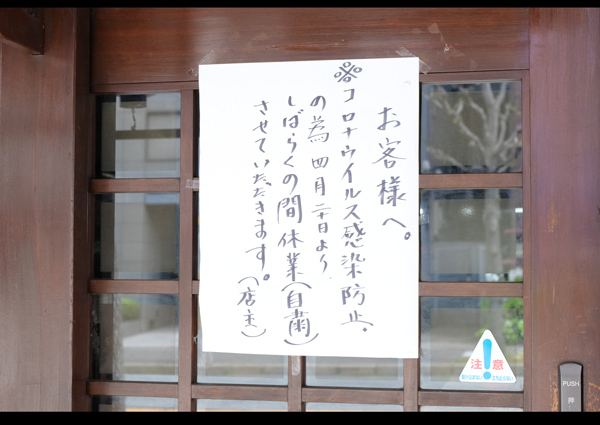 お客様へ。
※コロナウイルス感染防止。
の為四月二十日より、
しばらくの間休業(自粛)
させていただきます。
(店主)
注意
PUSH
押